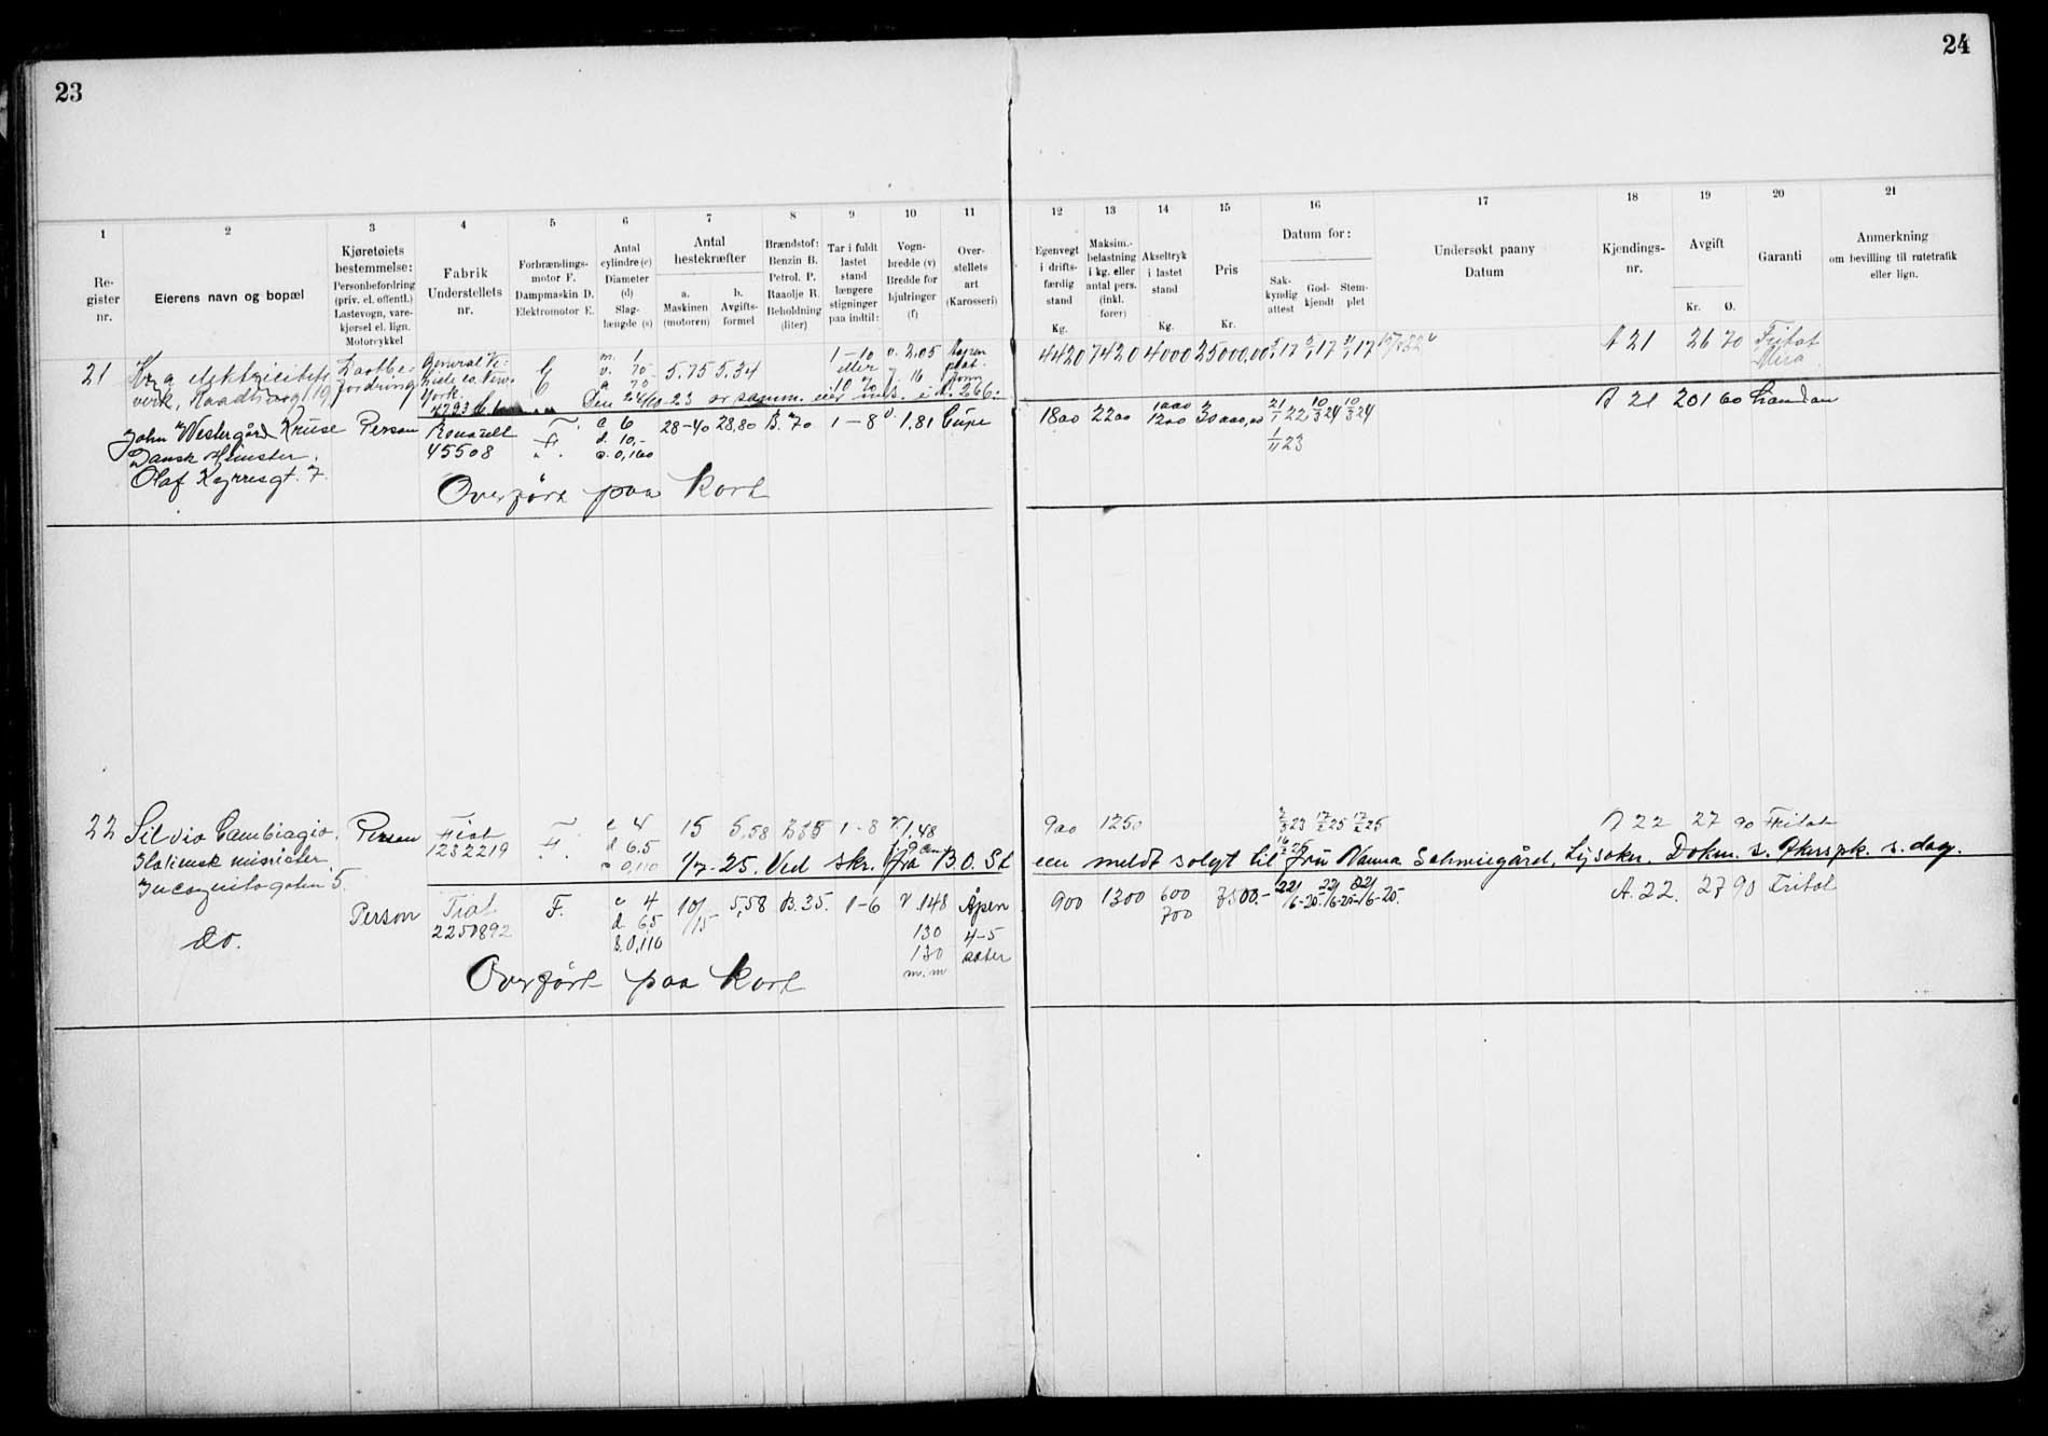 23
24
1
2
3
4
5
6
7
8
9
10
11
12
13
14
15
16
17
18
19
20
21
Re-
gister
nr.
Eierens navn og bopæl
Kjøretøiets
bestemmelse:
Personbefordring
(priv. el. offentl.)
Lastevogn, vare-
kjørsel el. lign.
Motorcykkel
Fabrik
Understellets
nr.
Forbrændings-
motor F.
Dampmaskin D.
Elektromotor E.
Antal
cylindre (c)
Diameter
(d)
Slag-
længde (s)
Antal
hestekræfter
a.
Maskinen
(motoren)
b.
Avgifts-
formel
Brændstof:
Benzin B.
Petrol. P.
Raaolje R.
Beholdning
(liter)
Tar i fuldt
lastet
stand
længere
stigninger
paa indtil:
Vogn-
bredde (v)
Bredde for
hjulringer
(f)
Over-
stellets
art
(Karosseri)
Egenvegt
i drifts-
færdig
stand
Kg.
Maksim.-
belastning
i kg. eller
antal pers.
(inkl.
fører)
Akseltryk
i lastet
stand
Kg.
Pris
Kr.
Datum for:
Sak-
kyndig
attest
God-
kjendt
Stem-
plet
Undersøkt paany
Datum
Kjendings-
nr.
Avgift
Kr. Ø.
Garanti
Anmerkning
om bevilling til rutetrafik
eller lign.
21 elektricitets
verk, 19
General Ve-
York.
E
m. 1
v. 70
a 70
5.75 5.34
1-10
eller
10 %
v. 2.05
f 16
4420 7420 4000 25000,00
A 21 26 70 Fritat
John Westergård Kruse
Dansk Minister.
Olaf Kyrresgt. 7.
Person
45508
F.
c 6
d. 10,-
s. 0,160
28-40 28,80 B. 70 1-8 v. 1,81
1800 2200 1000
1200 30000,00 21/1 22 10/3 24 10/3 24
1/11 23
A 21 201 60
Overført paa kort
22 Silvio Cambiagio.
Italiensk minister
Incognitogaten 5.
Person Fiat
1232219
F.
c 4
d 6.5
s 0,110
15 5,58 B 35 1-8 v 1,48
900 1250
2/3 23 17/2 25 17/2 25
A 22 27 90 Fritat
1/7-25. Ved skr. fra B.O. St
een meldt solgt til fru Nanna Schwiegård, Lysaker. Dokm. s. s. dag.
do.
Person Fiat
2250892
F.
c 4
d 65
s. 0,110
10/15 5,58 B. 35. 1-6 v .148
130
130
m.m
Åpen
4-5
seter
900 1300 600
700 7500.- 22/6-25. 22/6-25. 22/6-25.
A. 22. 27 90 Fritat
Overført paa kort